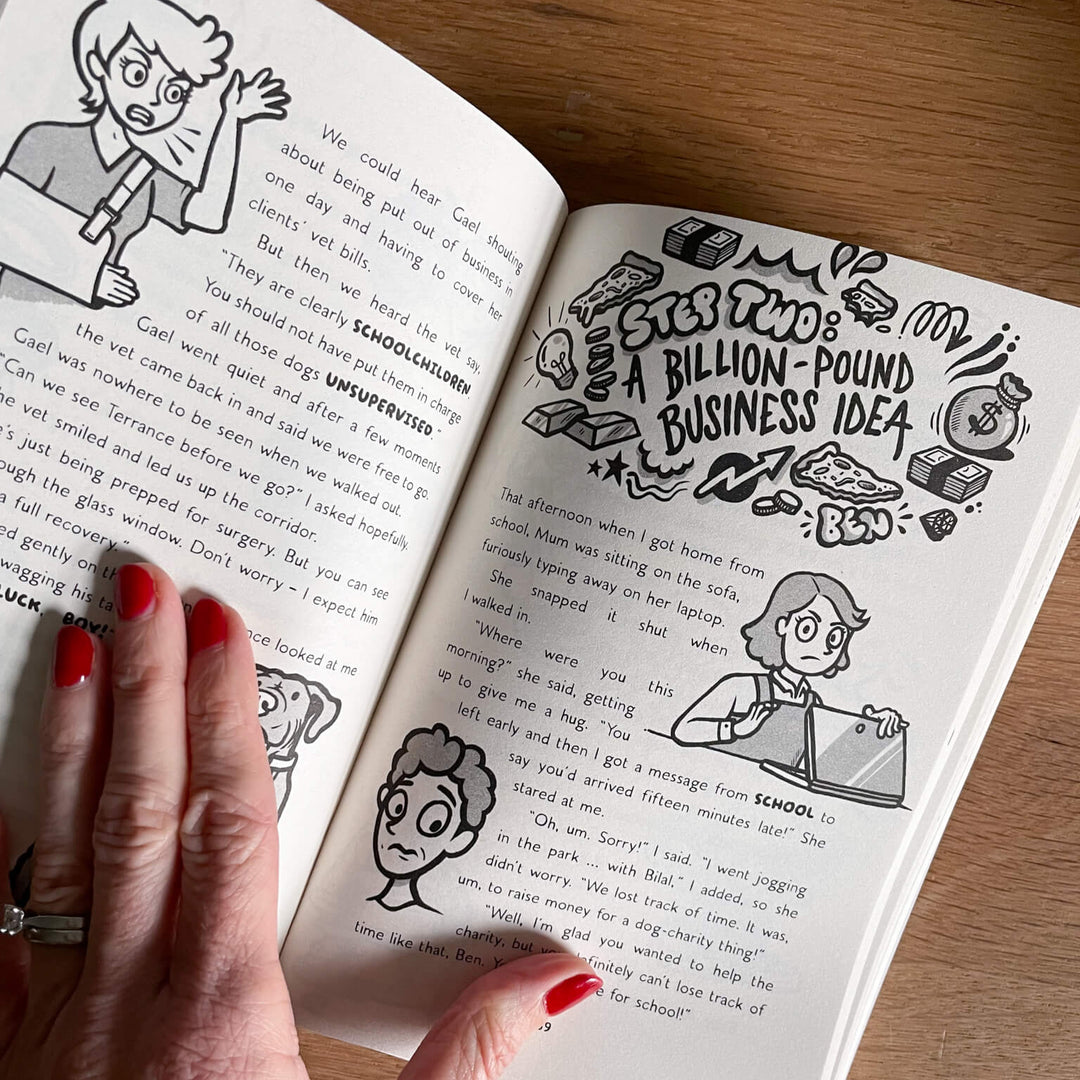 We could hear Gael shouting
about being put out of business in
one day and having to cover her
clients' vet bills.
But then we heard the vet say,
"They are clearly SCHOOLCHILDREN.
You should not have put them in charge
of all those dogs UNSUPERVISED."
Gael went quiet and after a few moments
the vet came back in and said we were free to go.
Gael was nowhere to be seen when we walked out.
"Can we see Terrance before we go?" I asked hopefully.
vet smiled and led us up the corridor.
just being prepped for surgery. But you can see
the glass window. Don't worry – I expect him
a full recovery."
gently on
wagging his
looked at me
LUCK,
STEP TWO:
A BILLION-POUND
BUSINESS IDEA
BEN
That afternoon when I got home from
school, Mum was sitting on the sofa,
furiously typing away on her laptop.
She snapped it shut when
I walked in.
"Where were you this
morning?" she said, getting
up to give me a hug. "You
left early and then I got a message from SCHOOL to
say you'd arrived fifteen minutes late!" She
stared at me.
"Oh, um. Sorry!" I said. "I went jogging
in the park ... with Bilal," I added, so she
didn't worry. "We lost track of time. It was,
um, to raise money for a dog-charity thing!"
"Well, I'm glad you wanted to help the
charity, but you definitely can't lose track of
time like that, Ben.
for school!"